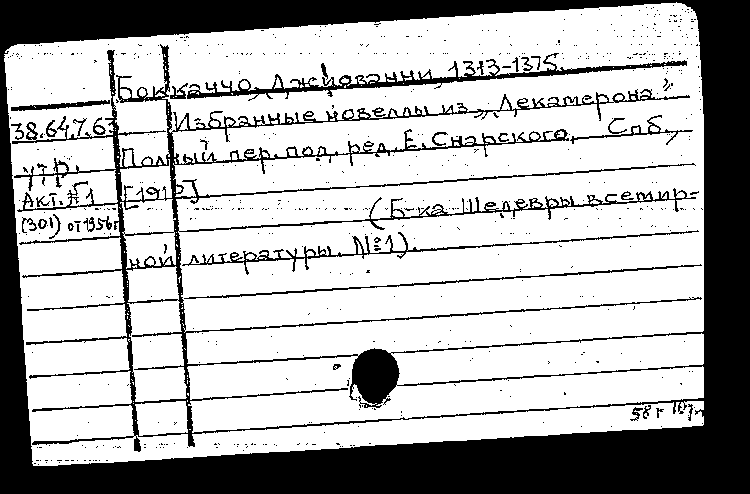 Боккаччо, Джованни, 1313-1375.
38.64.7.63 Избранные новеллы из „Декамерона".
Полный пер. под ред. Е. Снарского, Спб.,
утр.
Акт. №1 [1912]
(301) от 1956г (Б-ка Шедевры всемир-
ной литературы. №1).
58г